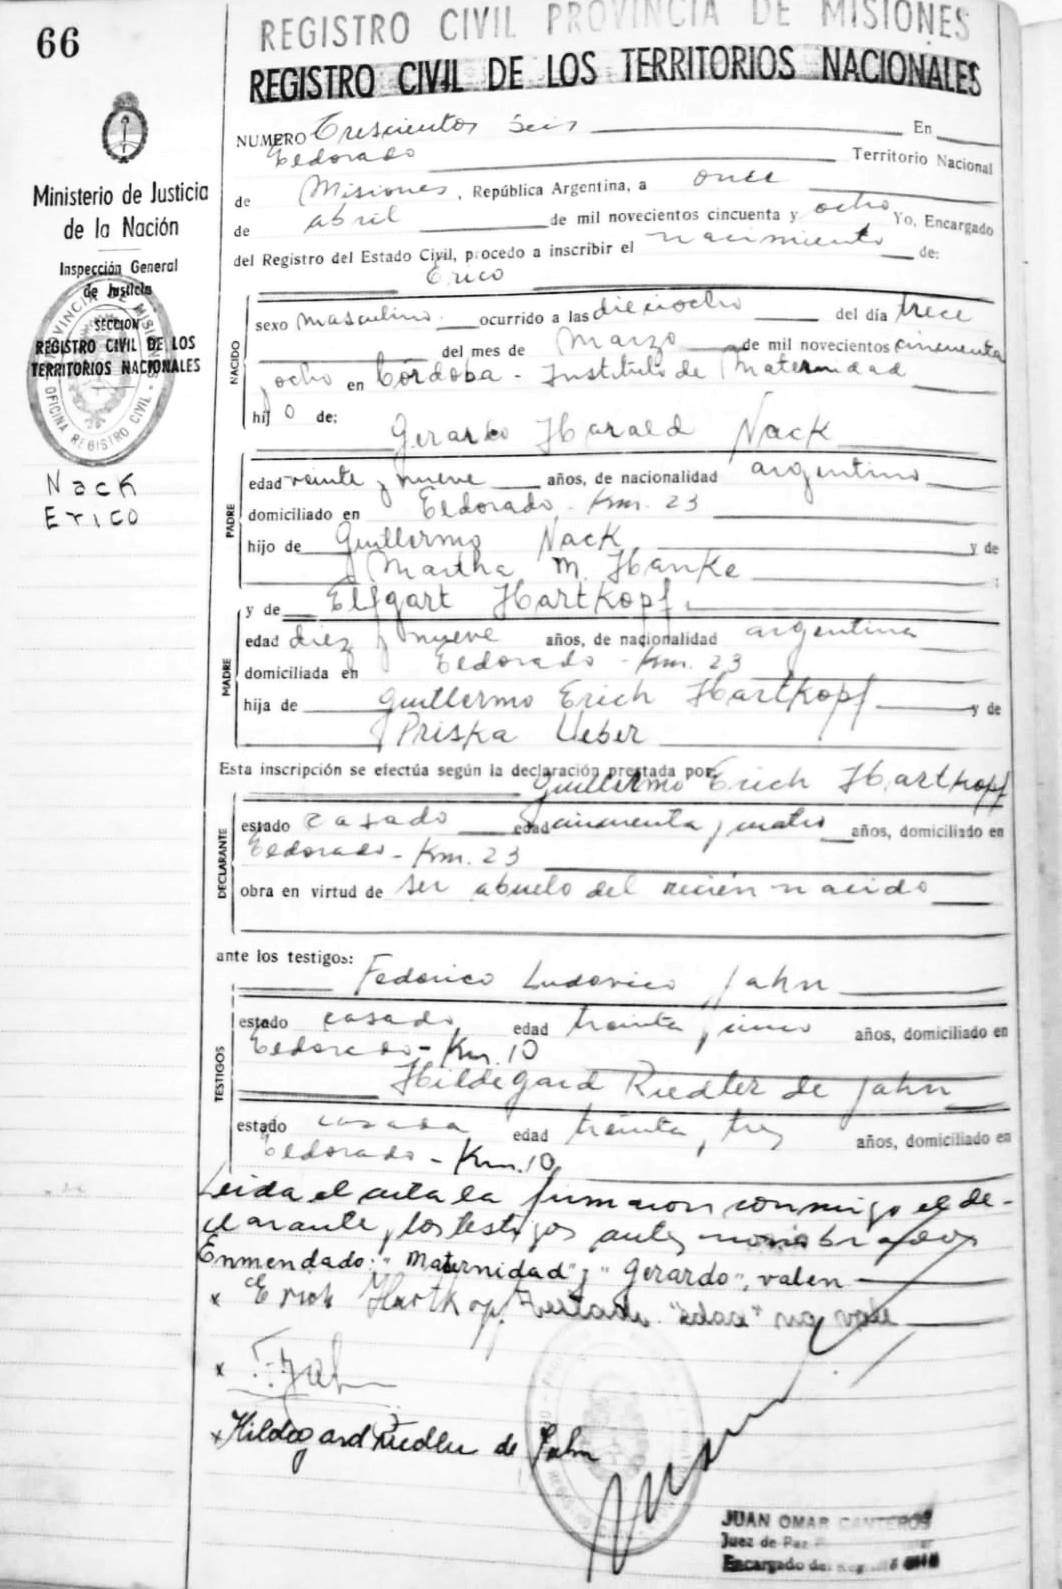 66
REGISTRO CIVIL PROVINCIA DE MISIONES
REGISTRO CIVIL DE LOS TERRITORIOS NACIONALES
Ministerio de Justicia
de la Nación
Inspección General
de Justicia
SECCION
REGISTRO CIVIL DE LOS
TERRITORIOS NACIONALES
PROVINCIA DE MISIONES
OFICINA REGISTRO CIVIL
Nack
Erico
NUMERO Trescientos Seis En
Eldorado Territorio Nacional
de Misiones, República Argentina, a once
de abril de mil novecientos cincuenta y ocho Yo, Encargado
del Registro del Estado Civil, procedo a inscribir el nacimiento de:
Erico
NACIDO
sexo masculino. ocurrido a las dieciocho del día trece
del mes de Marzo de mil novecientos cincuenta
y ocho en Córdoba - Instituto de Maternidad
hijo de:
Gerardo Harald Nack
PADRE
edad veinte y nueve años, de nacionalidad argentino
domiciliado en Eldorado - Km. 23
hijo de Guillermo Nack y de
Martha M. Hanke
y de Elfgart Hartkopf.
MADRE
edad diez y nueve años, de nacionalidad argentina
domiciliada en Eldorado - Km. 23
hija de Guillermo Erich Hartkopf y de
Priska Ueber
Esta inscripción se efectúa según la declaración prestada por:
Guillermo Erich Hartkopf
DECLARANTE
estado casado edad cincuenta y cuatro años, domiciliado en
Eldorado - Km. 23
obra en virtud de ser abuelo del recién nacido
ante los testigos:
Federico Ludovico Jahn
TESTIGOS
estado casado edad treinta y cinco años, domiciliado en
Eldorado - Km. 10
Hildegard Riedler de Jahn
estado casada edad treinta y tres años, domiciliado en
Eldorado - Km. 10
Leida el acta la firmaron conmigo el de-
clarante y los testigos antes nombrados
Enmendado: "Maternidad" y "Gerardo", valen
x Erich Hartkopf Testado "edad" no vale
x F. Jahn
x Hildegard Riedler de Jahn
JUAN OMAR CANTEROS
Juez de Paz
Encargado del Reg